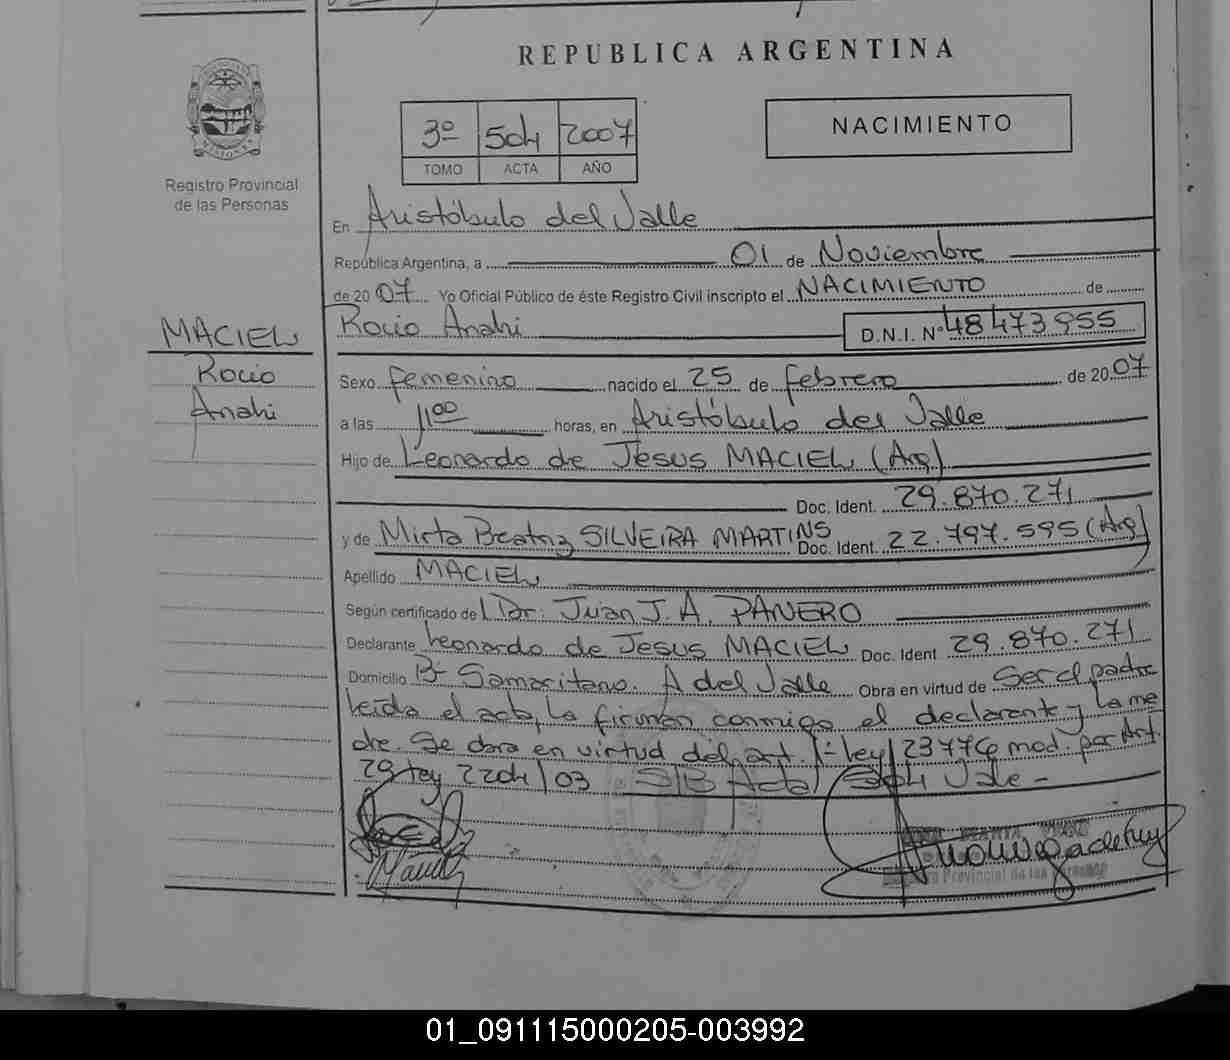 REPUBLICA ARGENTINA
MISIONES
Registro Provincial
de las Personas
3º 504 2007
TOMO ACTA AÑO
NACIMIENTO
En Aristóbulo del Valle
República Argentina, a 01 de Noviembre
de 20 07 Yo Oficial Público de éste Registro Civil inscripto el NACIMIENTO de
Rocio Anahi D.N.I. Nº 48473955
MACIEL
Rocio
Anahi
Sexo femenino nacido el 25 de febrero de 20 07
a las 11 00 horas, en Aristóbulo del Valle
Hijo de Leonardo de Jesus MACIEL (Arg)
Doc. Ident. 29.870.271
y de Mirta Beatriz SILVEIRA MARTINS Doc. Ident. 22.797.595 (Arg)
Apellido MACIEL
Según certificado de Dr. Juan J. A. PANERO
Declarante Leonardo de Jesus MACIEL Doc. Ident 29.870.271
Domicilio Bº Samaritano. A del Valle Obra en virtud de Ser el padre
leida el acta, la firman conmigo el declarante y la ma
dre. Se obra en virtud del art. 1º ley 23776 mod. por Art.
29 ley 2204/03 S/B Acta 504 Vale -
Provincial de las Personas
01_091115000205-003992